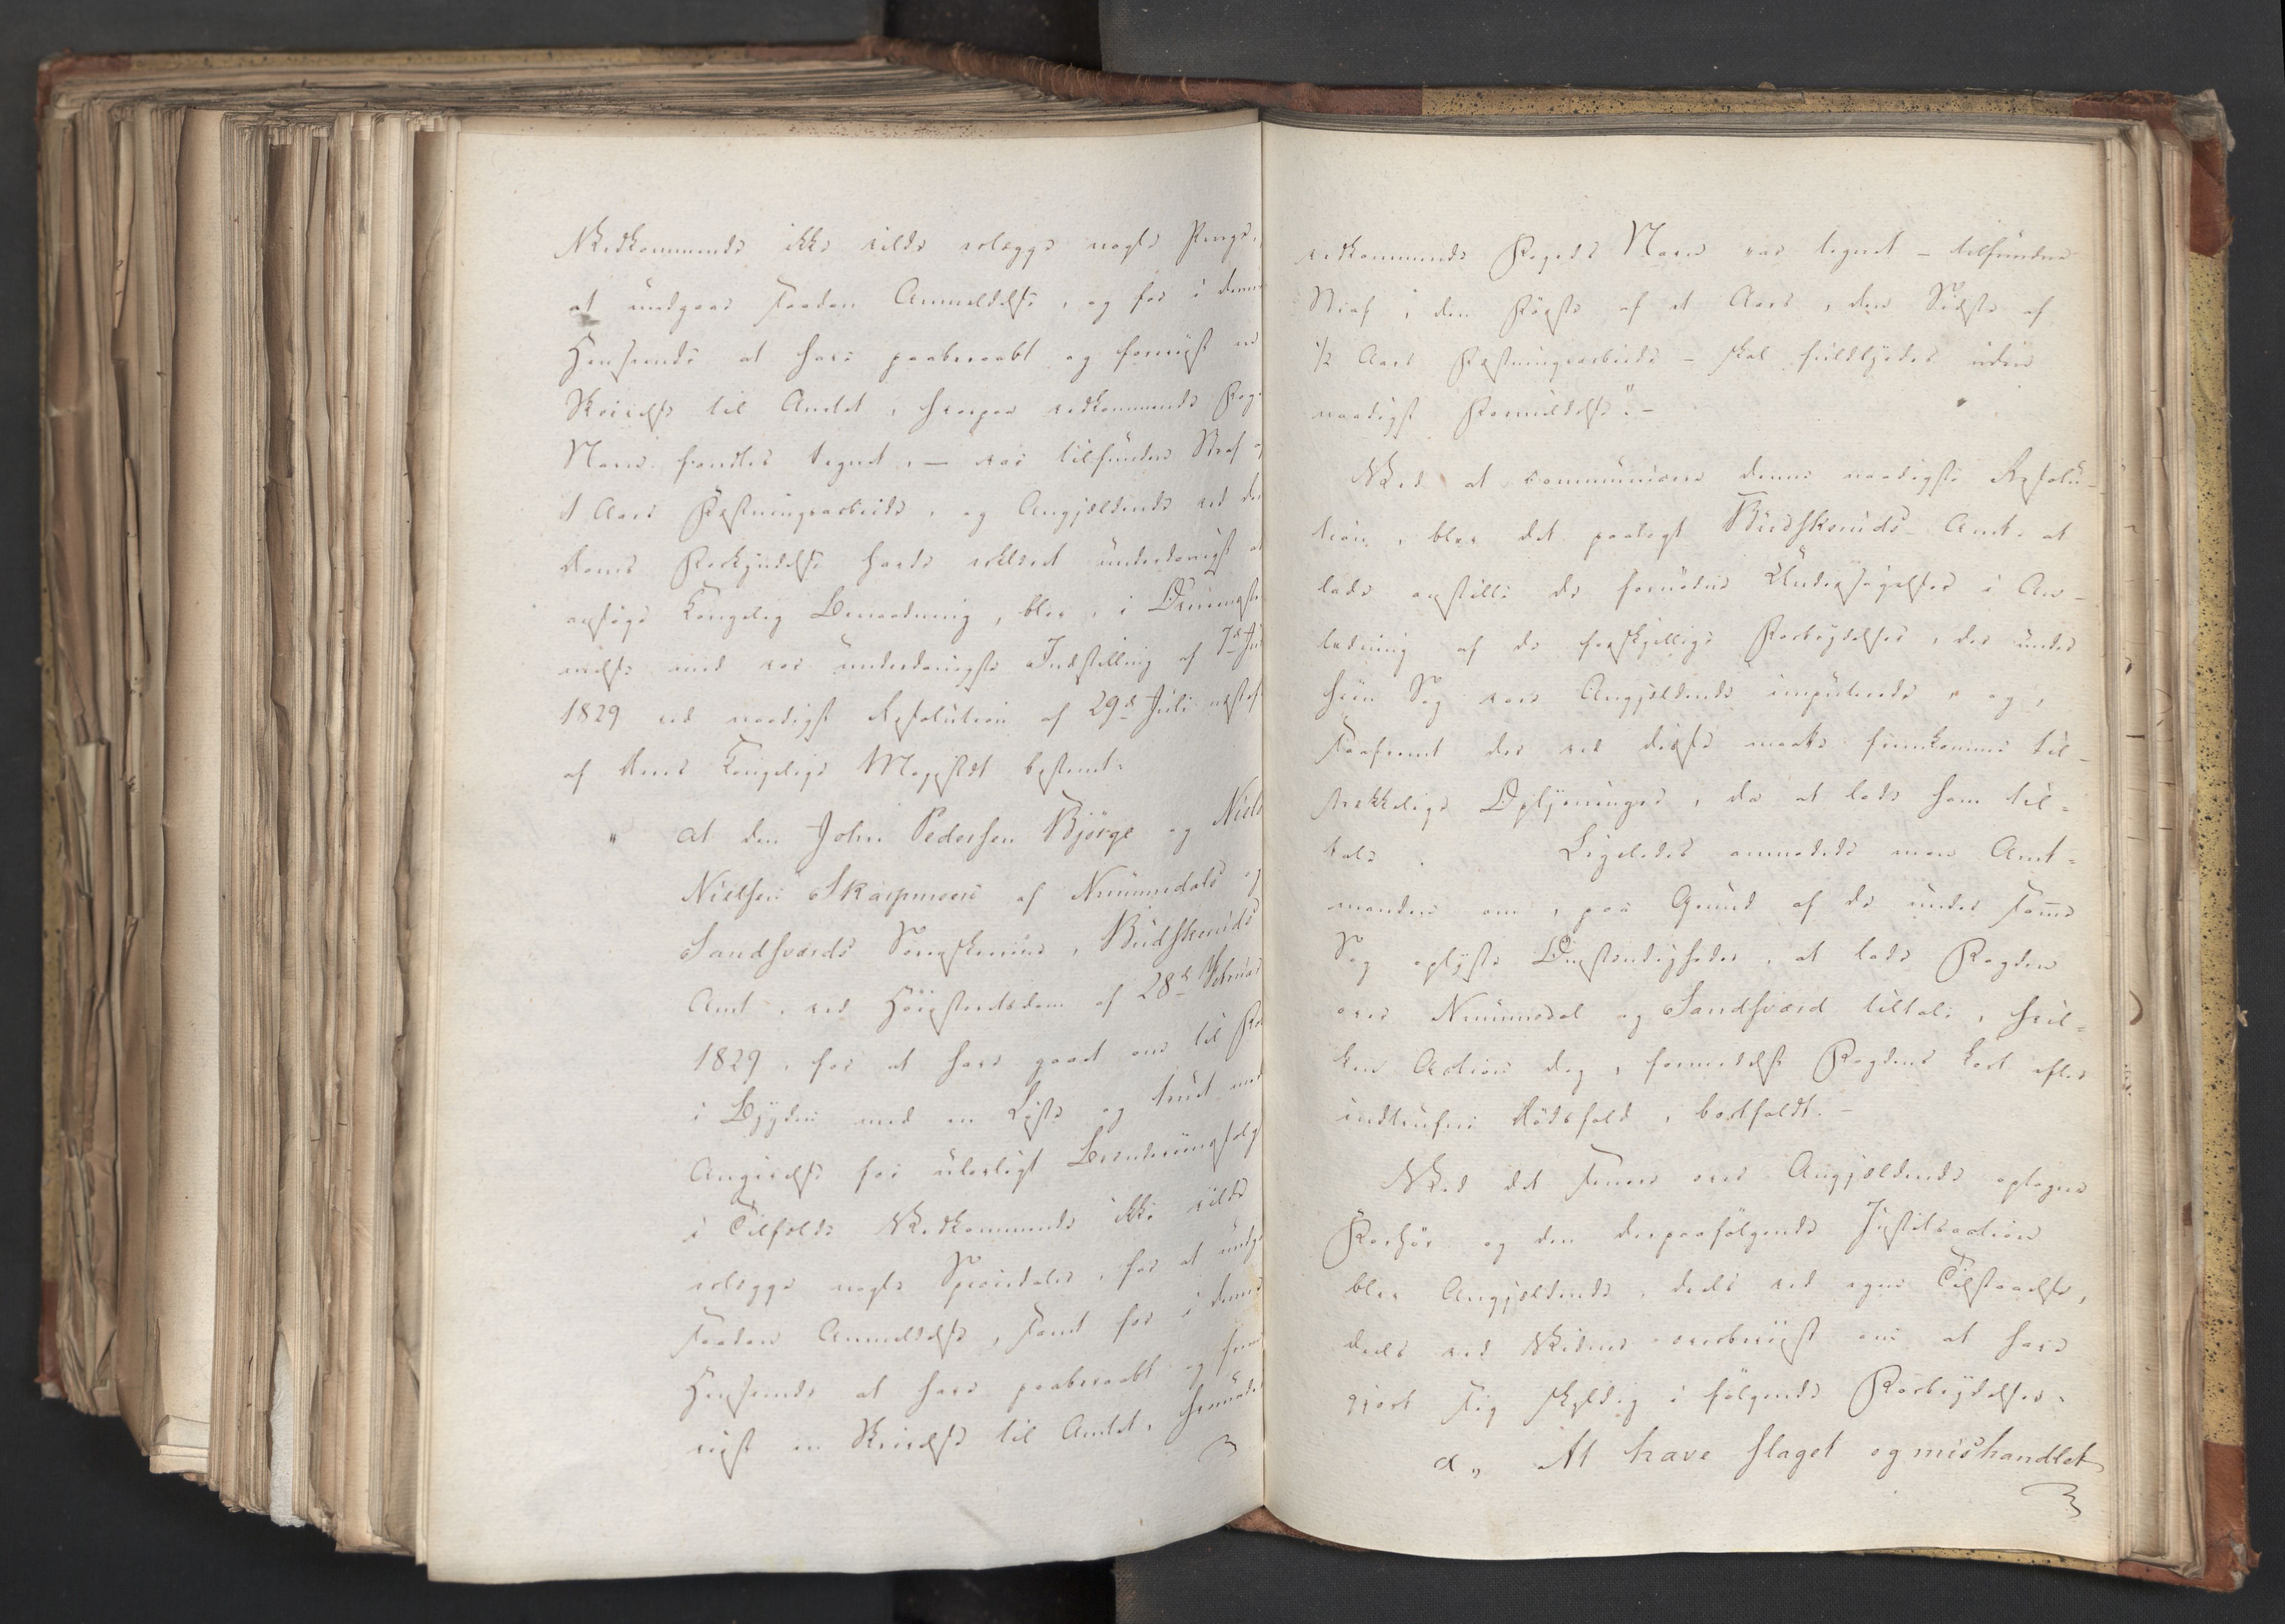 Vedkommende ikke vilde erlægge nogle Penge,
at undgaae saadan Anmeldelse, og for i denne
Henseende at have paaberaabt og foreviist en
Skrivelse til Amtet, hvorpaa vedkommende Foge
Navn fandtes tegnet, — var tilfunden Straf af
1 Aars Fæstningsarbeide, og Angjeldende ved de
Doms Forkyndelse havde erklæret underdanigst at
ansøge Kongelig Benaadning, blev, i Overeensste
melse med vor underdanigste Indstilling af 7de Ju
1829 ved naadigst Resolution af 29de Juli næstef
af Deres Kongelige Majestæt bestemt:
" at den John Pedersen Bjørge og Niels
Nielsen Skarpmoen af Nummedals og
Sandsværds Sorenskriverie, Budskeruds
Amt, ved Høiesteretsdom af 28de Februar
1829, for at have gaaet om til For
i Bygden med en Liste og truet med
Angivelse for ulovligt Brændeviinssalg
i Tilfælde Vedkommende ikke vilde
erlægge nogle Speciedaler, for at undg
saadan Anmeldelse, samt for i denne
Henseende at have paaberaabt og fore
viist en Skrivelse til Amtet, hvorunder
vedkommende Fogeds Navn var tegnet – tilfundne
Straf, i den Første af et Aars, den Sidste af
1/2 Aars Fæstningsarbeide – skal fuldbyrdes uden
naadigst Formildelse". –
Ved at communicere denne naadigste Resolu-
tion, blev det paalagt Budskeruds Amt, at
lade anstille de fornødne Undersøgelser i An-
ledning af de forskjellige Forbrydelser, der under
hiin Sag vare Angjeldende imputerede, og,
saafremt der ved disse maatte fremkomme til-
strekkelige Oplysninger, da at lade ham til=
tale. Ligeledes anmodede man Amt=
manden om, paa Grund af de under samme
Sag oplyste Omstændigheder, at lade Fogden
over Nummedal og Sandsværd tiltale, hvil=
ken Action dog, formedelst Fogdens kort efter
indtrufne Dødsfald, bortfaldt. –
Ved det senere over Angjeldende optagne
Forhør og den derpaafølgende Justitsaction
blev Angjeldende, deels ved egen Tilstaaelse,
deels ved Vidner overbeviist om at have
gjort sig skyldig i følgende Forbrydelser:
a„ At have slaget og mishandlet